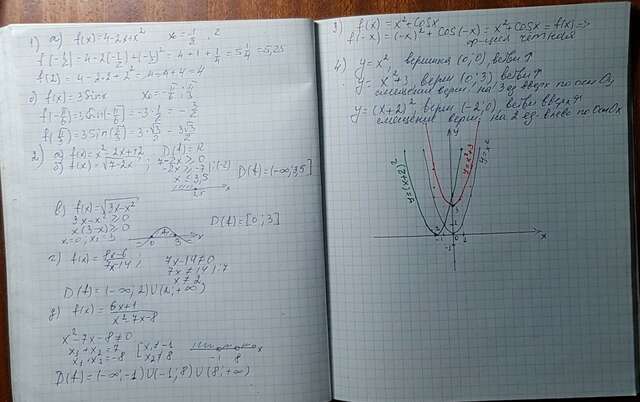 1) а) f(x)=4-2x+x² x₀=-1/2; 2
f(-1/2)=4-2(-1/2)+(-1/2)²=4+1+1/4=5 1/4=5,25
f(2)=4-2·2+2²=4-4+4=4
б) f(x)=3sinx x₀=-π/6; π/3
f(-π/6)=3sin(-π/6)=-3·1/2=-3/2
f(π/3)=3sin(π/3)=3·√3/2=3√3/2
2) а) f(x)=x²-2x+12 D(f)=R
б) f(x)=√7-2x; 7-2x≥0
-2x≥-7 |:(-2)
x≤3,5
D(f)=(-∞;3,5]
3,5 x
в) f(x)=√3x-x²
3x-x²≥0
x(3-x)≥0
x=0; x=3
0 3 x
D(f)=[0;3]
г) f(x)=7x-14; 7x-14≠0
7x≠14 |:7
x≠2
D(f)=(-∞;2)∪(2;+∞)
д) f(x)=6x+1/x²-7x-8
x²-7x-8≠0
x₁+x₂=7
x₁·x₂=-8
[x₁≠-1
x₂≠8
-1 8 x
D(f)=(-∞;-1)∪(-1;8)∪(8;+∞)
3) f(x)=x²+cosx
f(-x)=(-x)²+cos(-x)=x²+cosx=f(x)=>
ф-ция чётная
4) y=x² вершина (0;0), ветви↑
y=x²+3, верш (0;3) ветви↑
смещении верш, на 3 ед вверх по оси Oy
y=(x+2)² верш (-2;0), ветви вверх↑
смещении верш, на 2 ед. влево по оси Ox
y
y=(x+2)²
y=x²+3
y=x²
3
-1 0 1 2 x
-1